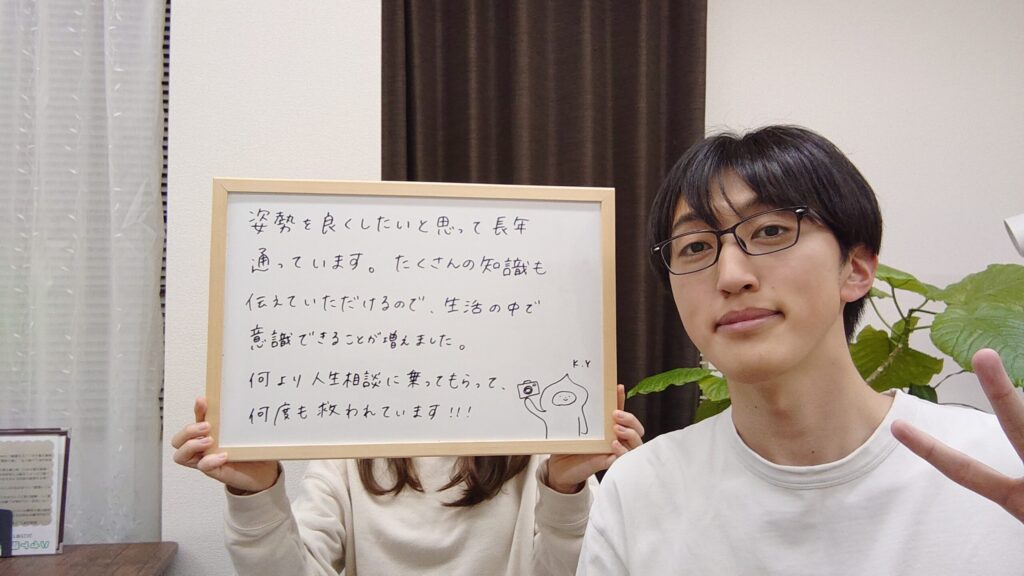 姿勢を良くしたいと思って長年
通っています。たくさんの知識も
伝えていただけるので、生活の中で
意識できることが増えました。
何より人生相談に乗ってもらって、
何度も救われています!!!
K.Y